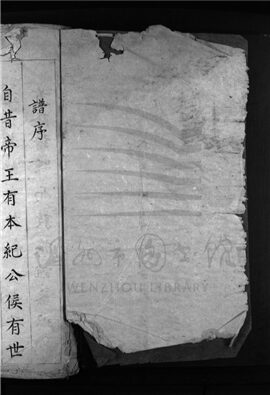 譜序
自昔帝王有本紀公侯有世
温州市图书馆
WENZHOU LIBRARY